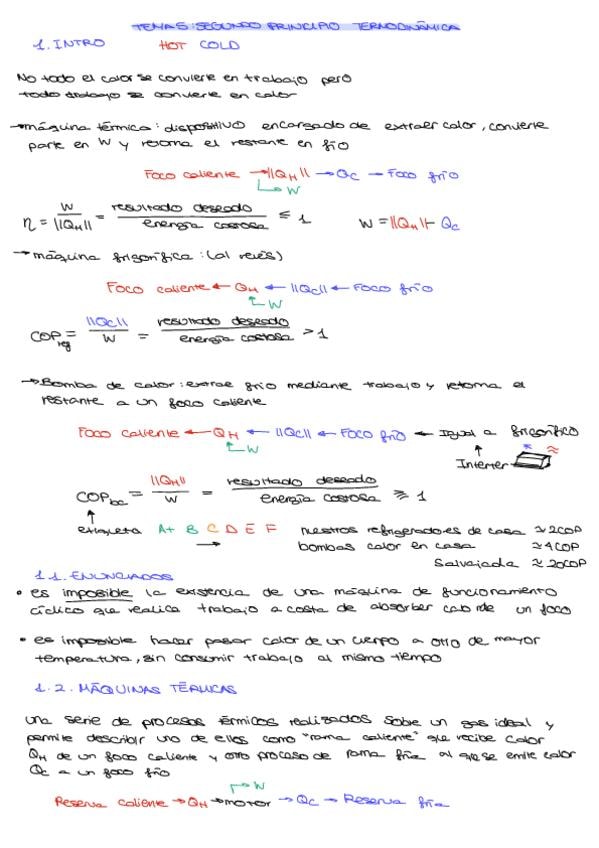 TEMA 5: SEGUNDO PRINCIPIO TERMODINÁMICA
1. INTRO HOT COLD
No todo el calor se convierte en trabajo pero
todo trabajo se convierte en calor
→ máquina térmica: dispositivo encargado de extraer calor, convierte
parte en W y retorna el restante en frío
Foco caliente → ||QH|| → QC → Foco frío
↳ W
η = W / ||QH|| = resultado deseado / energía costosa ≤ 1 W = ||QH|| - QC
→ máquina frigorífica: (al revés)
Foco caliente ← QH ← ||QC|| ← Foco frío
↳ W
COP reg = ||QC|| / W = resultado deseado / energía costosa > 1
→ Bomba de calor: extrae frío mediante trabajo y retorna el
restante a un foco caliente
Foco caliente ← QH ← ||QC|| ← Foco frío ← Igual a frigorífico
↳ W ↑
Interter
COP bc = ||QH|| / W = resultado deseado / energía costosa ≥ 1
↑
etiqueta A+ B C D E F nuestros refrigeradores de casa ≃ 2COP
→ bombas calor en casa ≃ 4COP
Salvajada ≃ 20COP
1.1. ENUNCIADOS
• es imposible la existencia de una máquina de funcionamiento
cíclico que realice trabajo a costa de absorber calor de un foco
• es imposible hacer pasar calor de un cuerpo a otro de mayor
temperatura, sin consumir trabajo al mismo tiempo
1.2. MÁQUINAS TÉRMICAS
una serie de procesos térmicos realizados sobre un gas ideal y
permite describir uno de ellos como "rama caliente" que recibe calor
QH de un foco caliente y otro proceso de rama fría al que se emite calor
QC a un foco frío
→ W
Reserva caliente → QH → motor → QC → Reserva fría